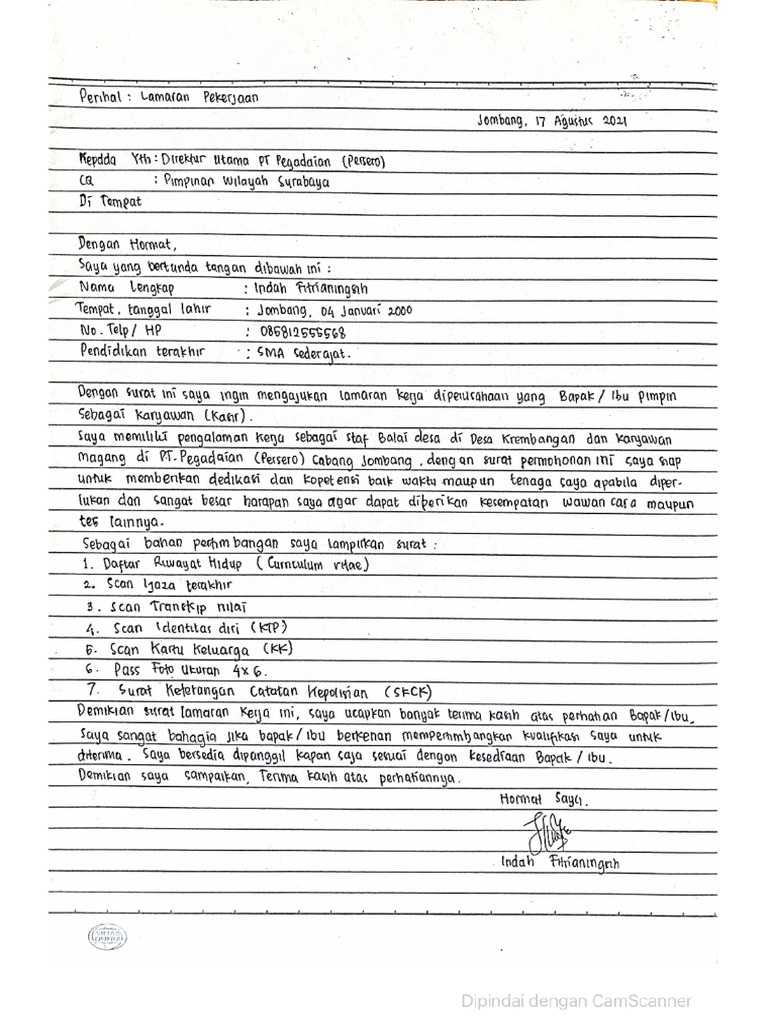 Perihal : Lamaran Pekerjaan
Jombang, 17 Agustus 2021
Kepdda Yth : Direktur Utama PT Pegadaian (Persero)
CQ : Pimpinan Wilayah Surabaya
Di Tempat
Dengan Hormat,
Saya yang bertunda tangan dibawah ini :
Nama Lengkap : Indah Fitrianingsih
Tempat, tanggal lahir : Jombang, 04 Januari 2000
No. Telp / HP : 085812555568
Pendidikan terakhir : SMA Sederajat.
Dengan surat ini saya ingin mengajukan lamaran kerja diperusahaan yang Bapak / Ibu Pimpin
Sebagai Karyawan (Kasir).
Saya memiliki pengalaman Kerja sebagai Staf Balai desa di Desa Krembangan dan Karyawan
magang di PT. Pegadaian (Persero) Cabang Jombang, dengan surat permohonan ini saya siap
untuk memberikan dedikasi dan kopetensi baik waktu maupun tenaga saya apabila diper-
lukan dan sangat besar harapan saya agar dapat diberikan kesempatan wawan cara maupun
tes lainnya.
Sebagai bahan pertimbangan saya lampirkan surat :
1. Daftar Riwayat Hidup (Curriculum vitae)
2. Scan Ijoza terakhir
3. Scan Transkip nilai
4. Scan Identitas diri (KTP)
5. Scan Kartu Keluarga (KK)
6. Pass Foto Ukuran 4x6.
7. Surat Keterangan Catatan Kepolisian (SKCK)
Demikian surat lamaran Kerja ini, saya ucapkan banyak terima kasih atas perhatian Bapak/Ibu.
Saya sangat bahagia jika bapak / Ibu berkenan mempertimbangkan kualifikasi saya untuk
diterima. Saya bersedia dipanggil kapan saja sesuai dengan kesediaan Bapak / Ibu.
Demikian saya sampaikan, Terima kasih atas perhatiannya.
Hormat Saya.
Indah Fitrianingsih
SINAR DUNIA
Dipindai dengan CamScanner